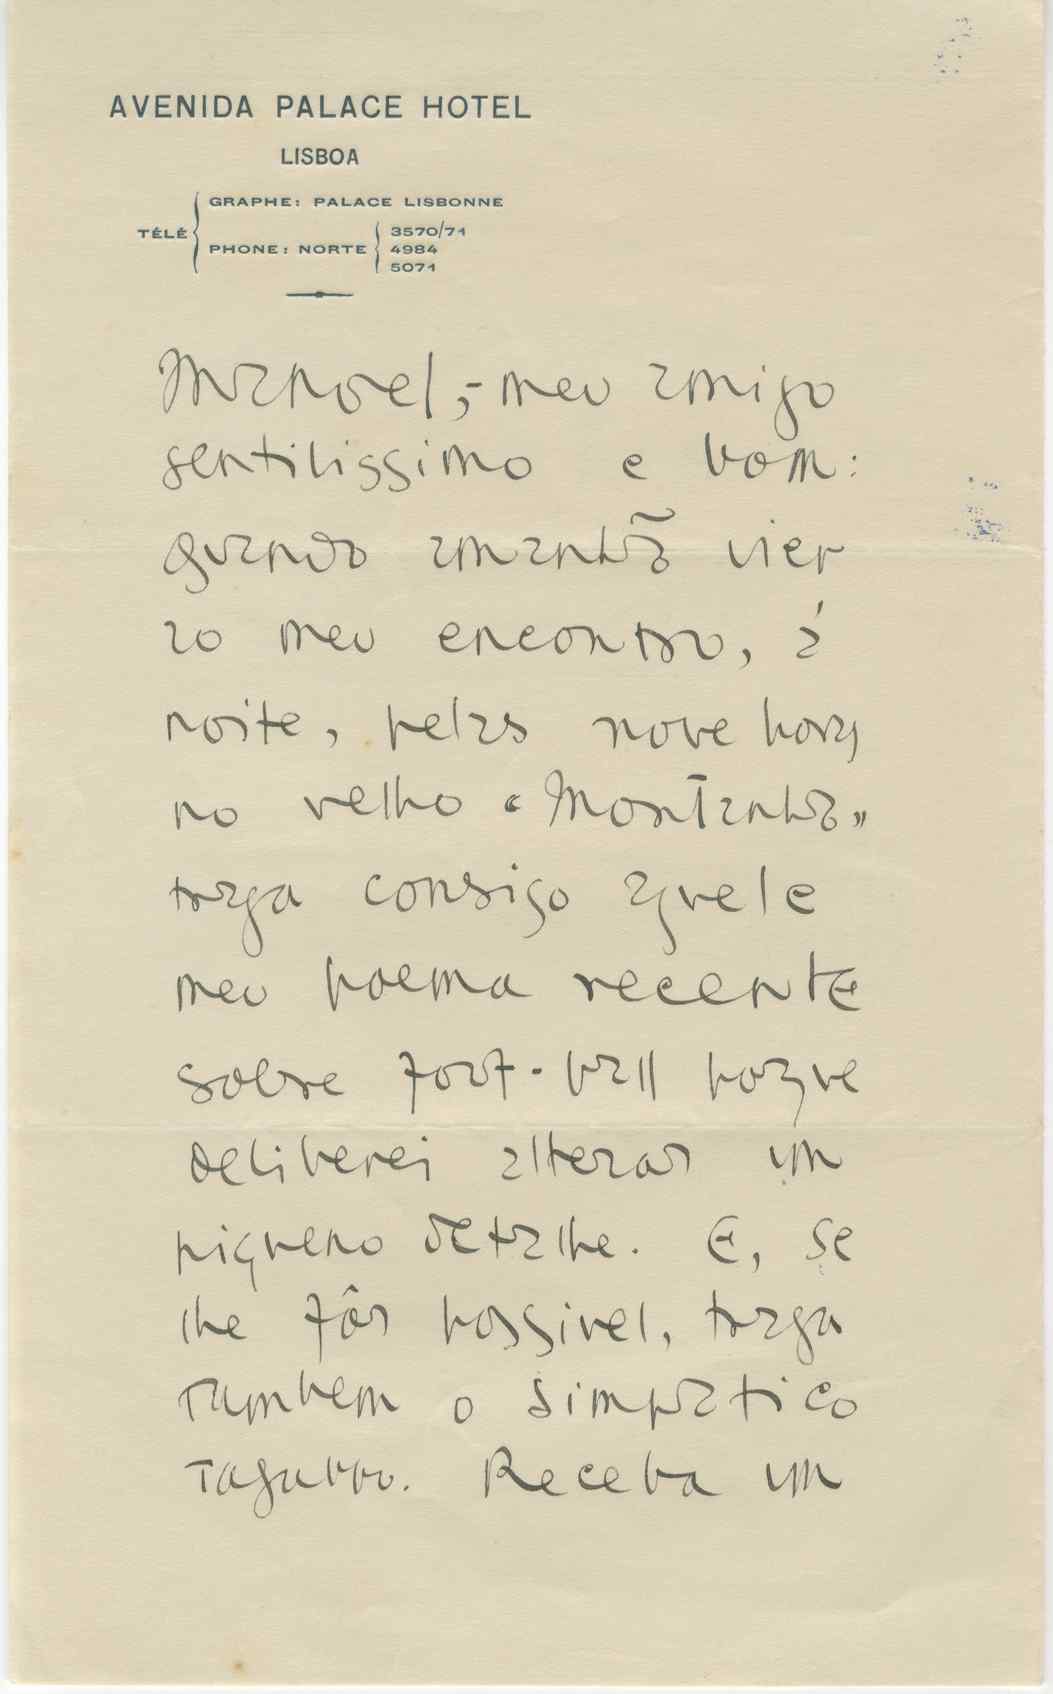 AVENIDA PALACE HOTEL
LISBOA
TÉLÉ
GRAPHE: PALACE LISBONNE
PHONE: NORTE
3570/71
4984
5071
Manoel,- meu amigo
gentilissimo e bom:
quando amanhã vier
ao meu encontro, á
noite, pelas nove horas
no velho «Montanha»
traga consigo aquele
meu poema recente
sobre foot-ball porque
deliberei alterar um
piqueno detalhe. E, se
lhe fôr possivel, traga
tambem o simpatico
Tagarro. Receba um